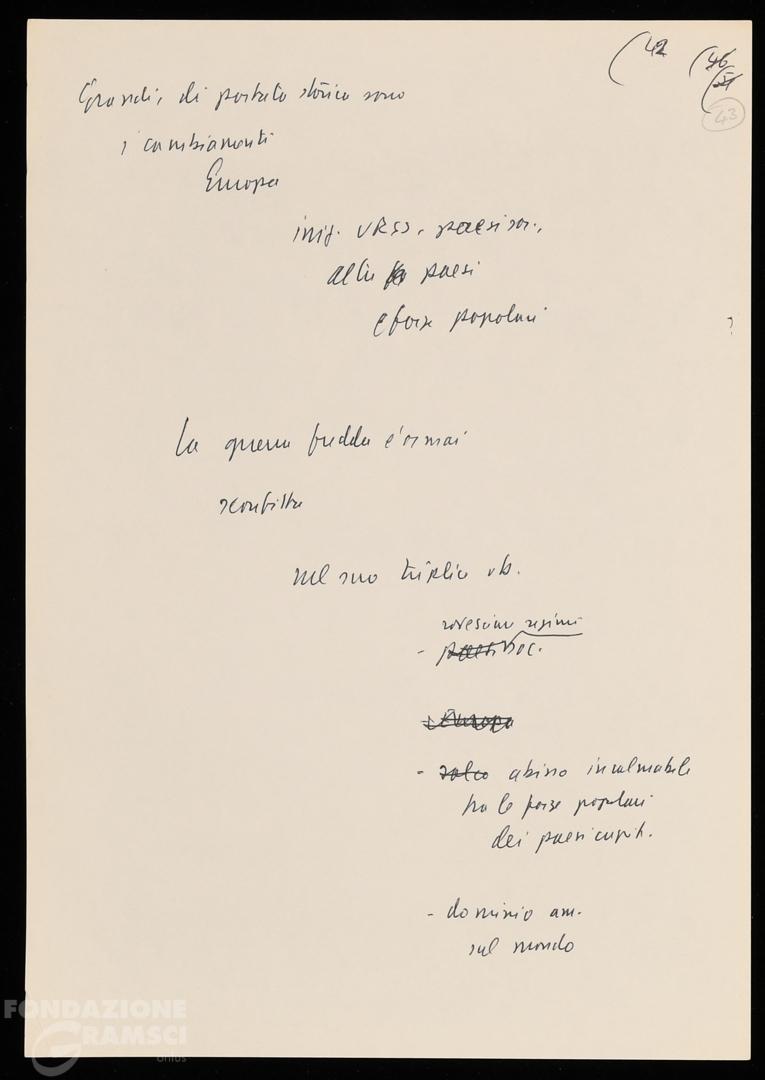 (42 (46
(51
43
Grandi, di portata storica sono
i cambiamenti
Europa
iniz. URSS, paesi soc.,
altri paesi
e forze popolari
?
La guerra fredda è ormai
sconfitta
nel suo triplice ob.
rovesciare regimi
- paesi soc.
- Europa
- solco abisso incolmabile
tra le forze popolari
dei paesi capit.
- dominio am.
sul mondo
FONDAZIONE
GRAMSCI
onlus